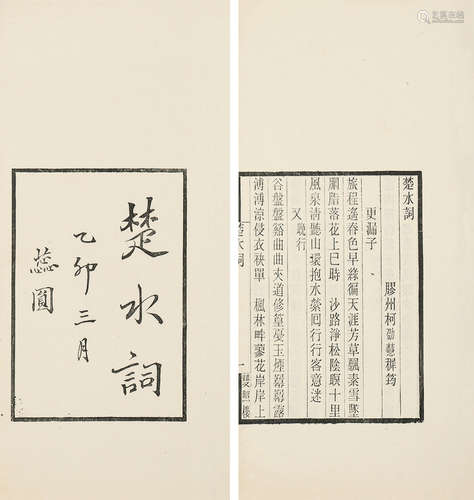 楚水詞
乙卯三月
蕊園
楚水詞
膠州柯劭慧穉筠
更漏子
旅程遙春色早綠徧天涯芳草飄素雪墜
胭脂落花上巳時 沙路淨松陰暝十里
風泉清聽山環抱水縈囘行行客意迷
又晚行
谷盤盤谿曲曲夾道修篁戞玉煙羃羃露
漙漙涼侵衣袂單 楓林畔蓼花岸岸上
楚水詞
一